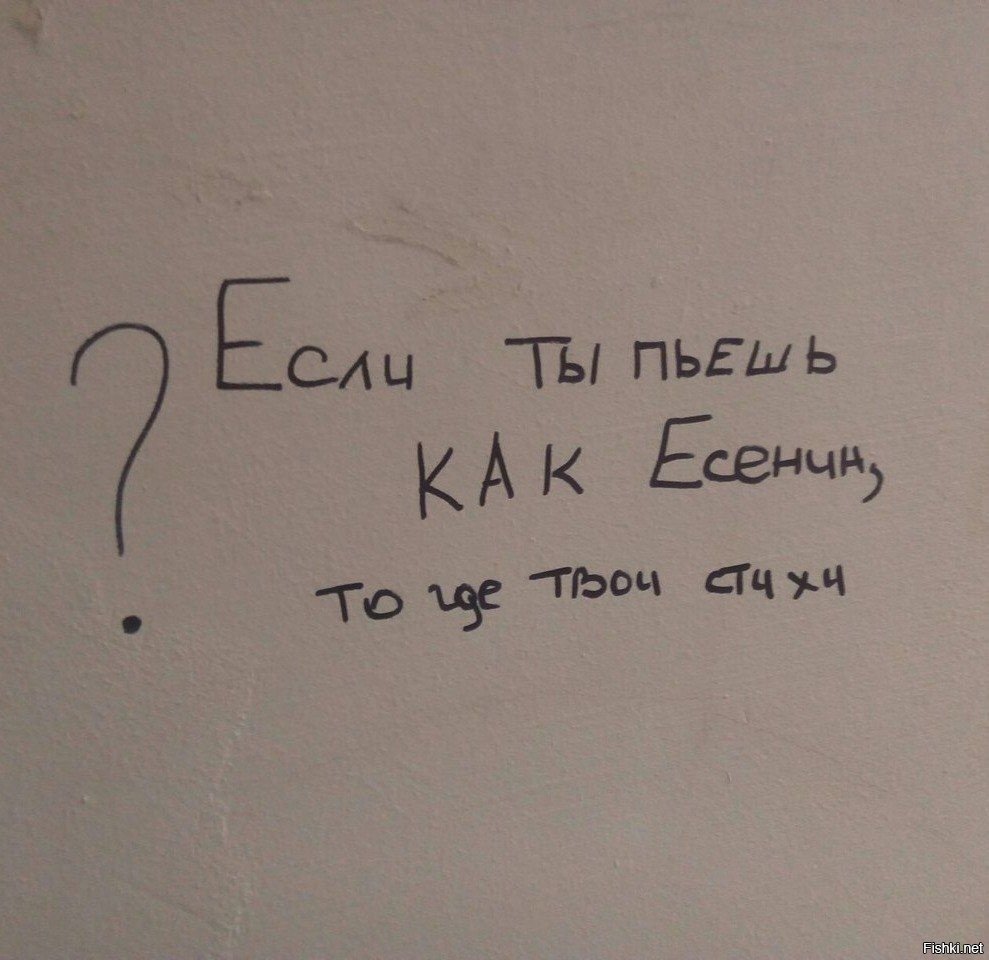 ? Если ты пьешь
как Есенин,
то где твои стихи
Fishki.net